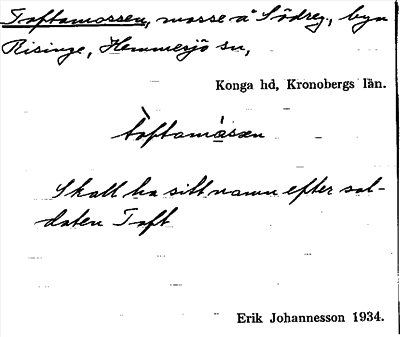 Toftamossen, mosse å Södreg., byn
Risinge, Hemmesjö sn,
Konga hd, Kronobergs län.
tòftamåsen
Skall ha sitt namn efter sol-
daten Toft
Erik Johannesson 1934.